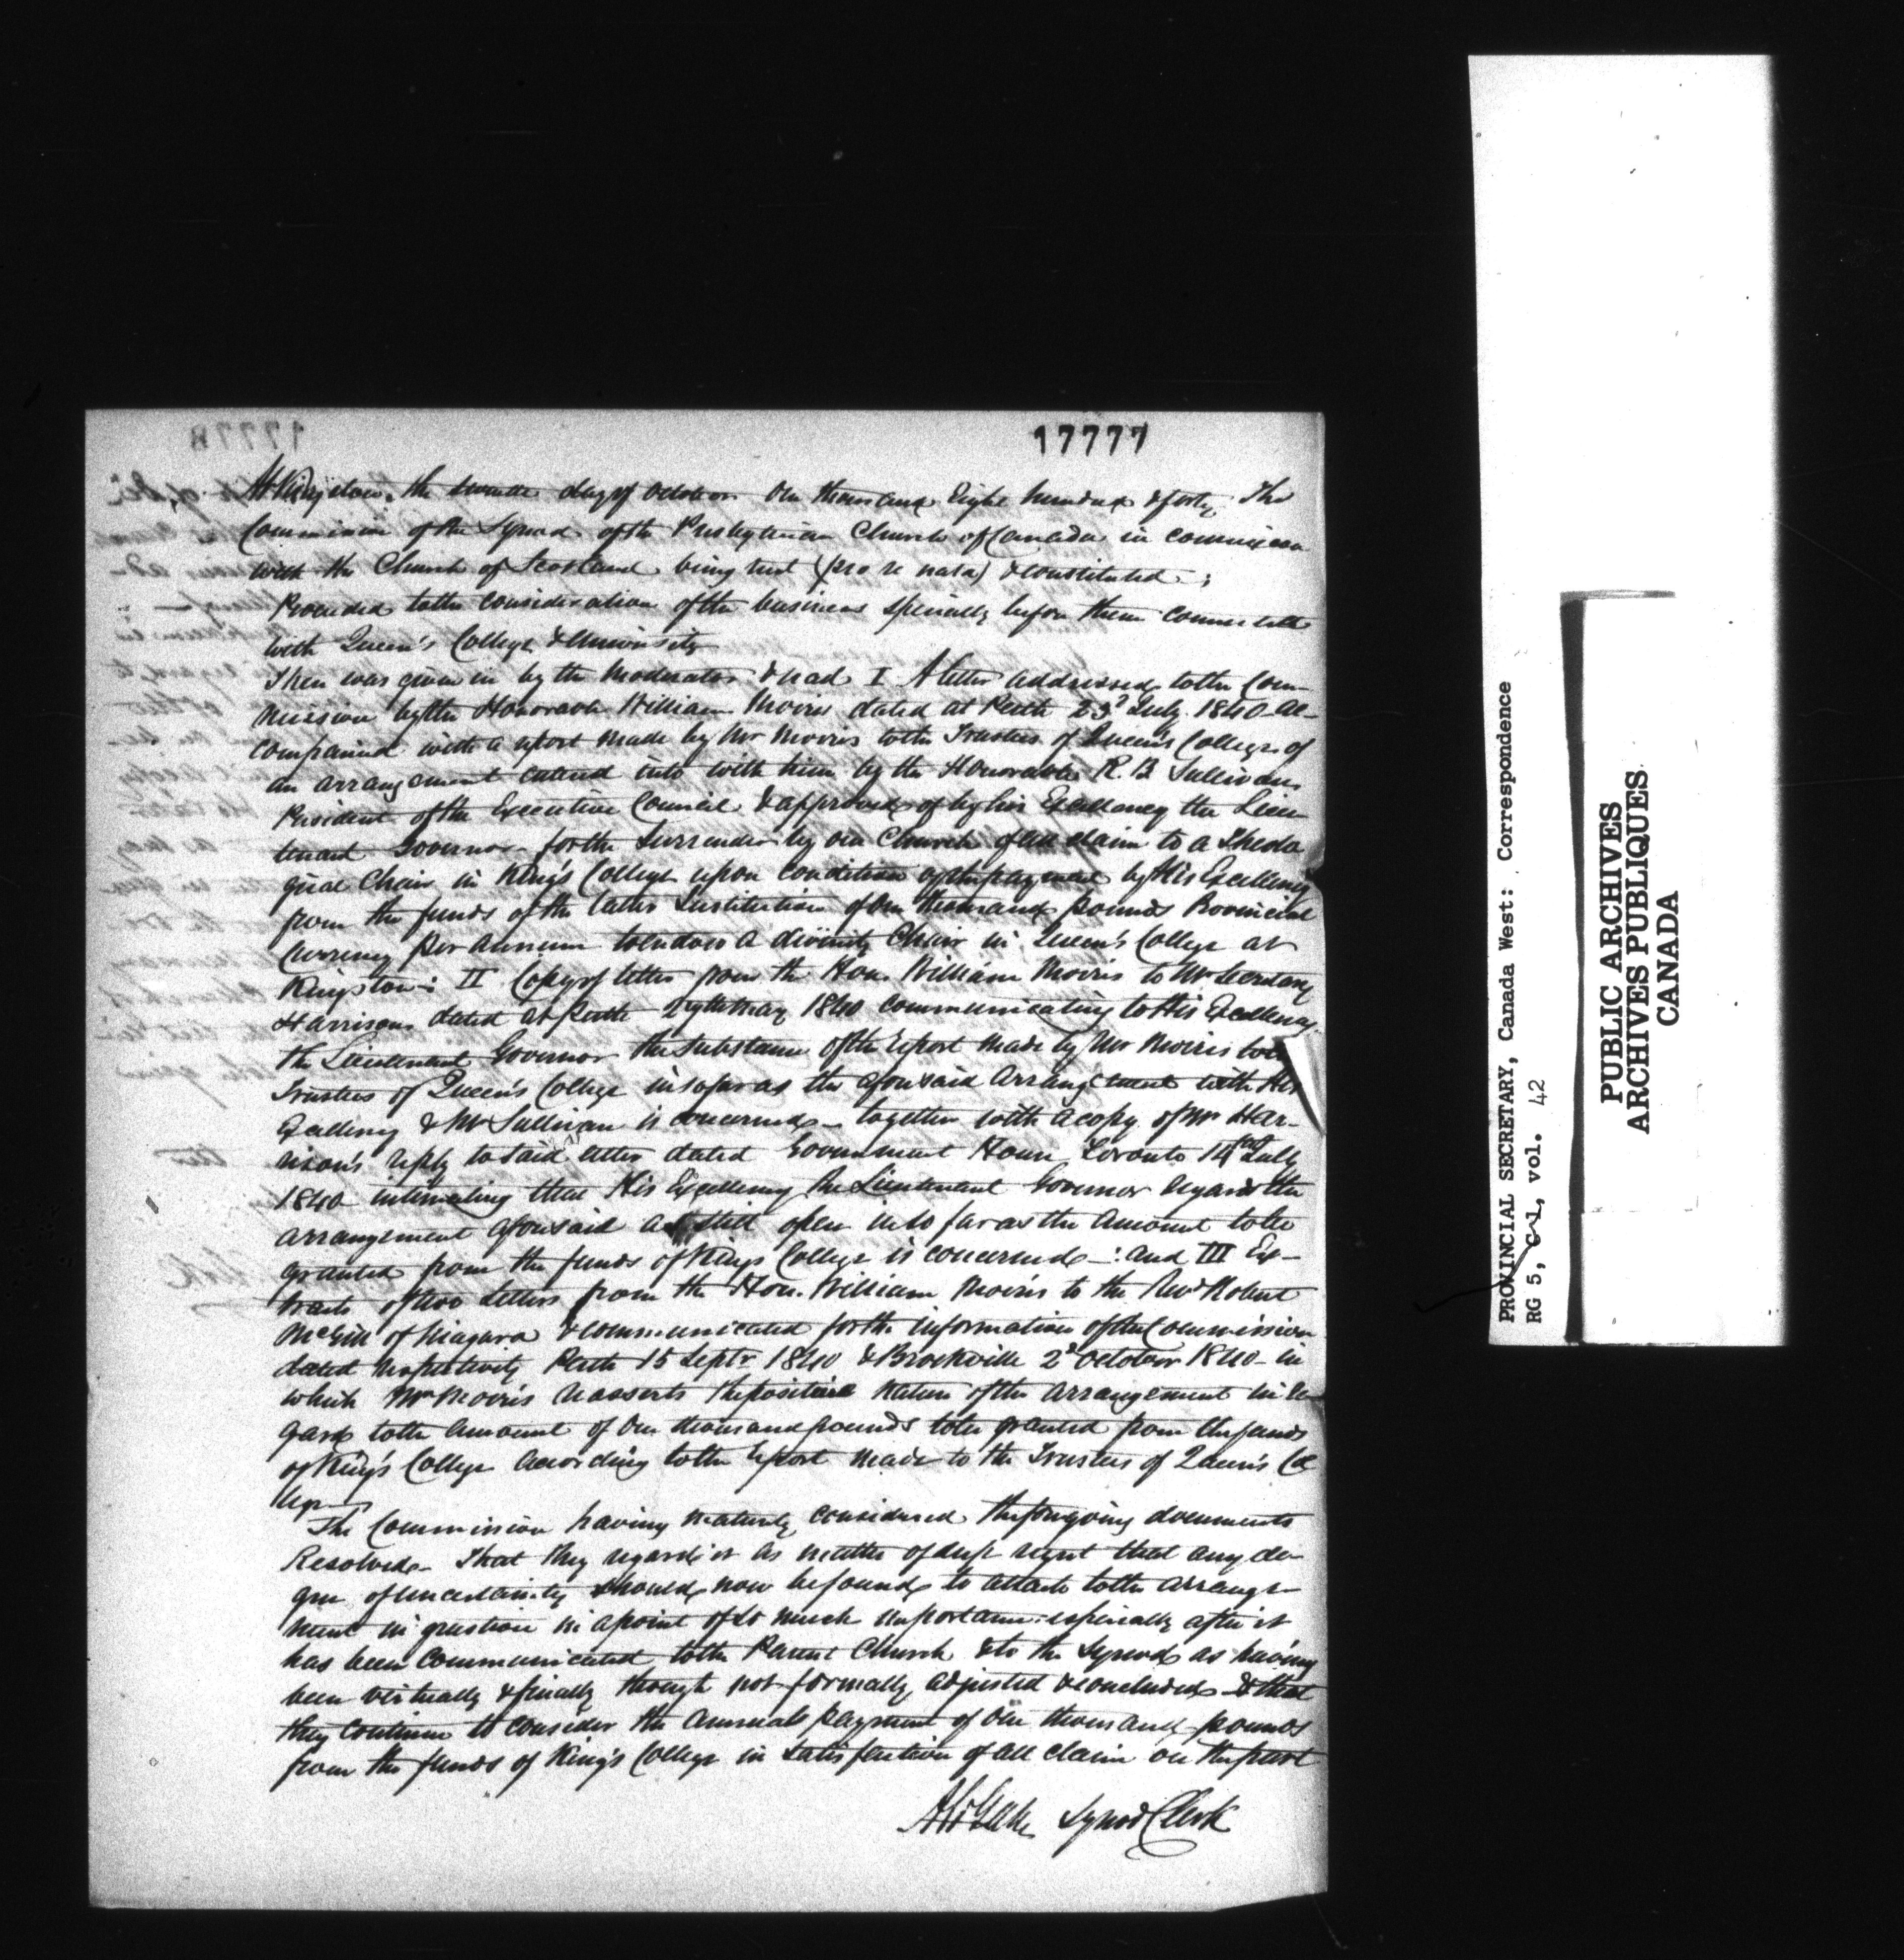 17777
At Kingston, the twelfth day of October One thousand Eight hundred & forty The
Commission of the Synod of the Presbyterian Church of Canada in connexion
with the Church of Scotland being met (pro re nata) & constituted;
Proceeded to the consideration of the business specially before them connected
with Queen's College & University
There was given in by the Moderator & read I A letter addressed to the Com-
mission by the Honorable William Morris dated at Perth 23d July 1840 ac-
companied with a report made by Mr Morris to the Trustees of Queen's College of
an arrangement entered into with him by the Honorable R. B Sullivan
President of the Executive Council & approved of by his Excellency the Lieu-
tenant Governor for the Surrender by our Church of all claim to a Theolo
gical Chair in King's College upon condition of the payment by His Excellency
from the funds of the latter Institution of One thousand pounds Provincial
Currency per annum to endow a divinity Chair in Queen's College at
Kingston: II Copy of letter from the Hon. William Morris to Mr Secretary
Harrison dated at Perth May 1840 communicating to His Excellency
the Lieutenant Governor the substance of the report made by Mr Morris to the
Trustees of Queen's College insofar as the aforesaid arrangement with His
Excellency & Mr Sullivan is concerned - together with a copy of Mr Har-
rison's reply to said letter dated Government House Toronto July
1840 intimating that His Excellency the Lieutenant Governor regards the
arrangement aforesaid as still open in so far as the amount to be
granted from the funds of King's College is concerned -: and III Ex-
tracts of two Letters from the Hon. William Morris to the Revd Robert
McGill of Niagara & communicated for the information of the Commission
dated respectively Perth 15 Septr 1840 & Brockville 2d October 1840 - in
which Mr Morris reasserts the positive nature of the arrangement in re-
gard to the amount of One thousand pounds to be granted from the funds
of King's College according to the report made to the Trustees of Queen's Col
lege -
The Commission having maturely considered the foregoing documents
Resolved - That they regard it as matter of deep regret that any de-
gree of uncertainty should now be found to attach to the arrange-
ment in question in a point of so much importance: especially after it
has been communicated to the Parent Church & to the Synod as having
been virtually & finally though not formally adjusted & concluded & that
they continue to consider the annual payment of One thousand pounds
from the funds of King's College in satisfaction of all claim on the part
Synod Clerk
PROVINCIAL SECRETARY, Canada West: Correspondence
RG 5, C-1, vol. 42
PUBLIC ARCHIVES
ARCHIVES PUBLIQUES
CANADA